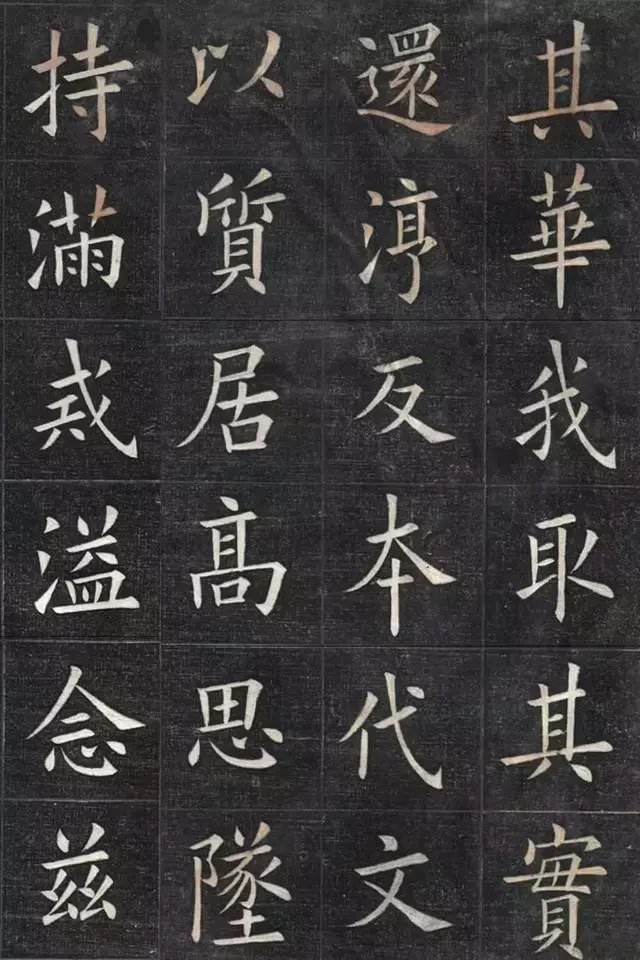 其華我取其實
還淳反本代文
以質居髙思墜
持滿戒溢念茲